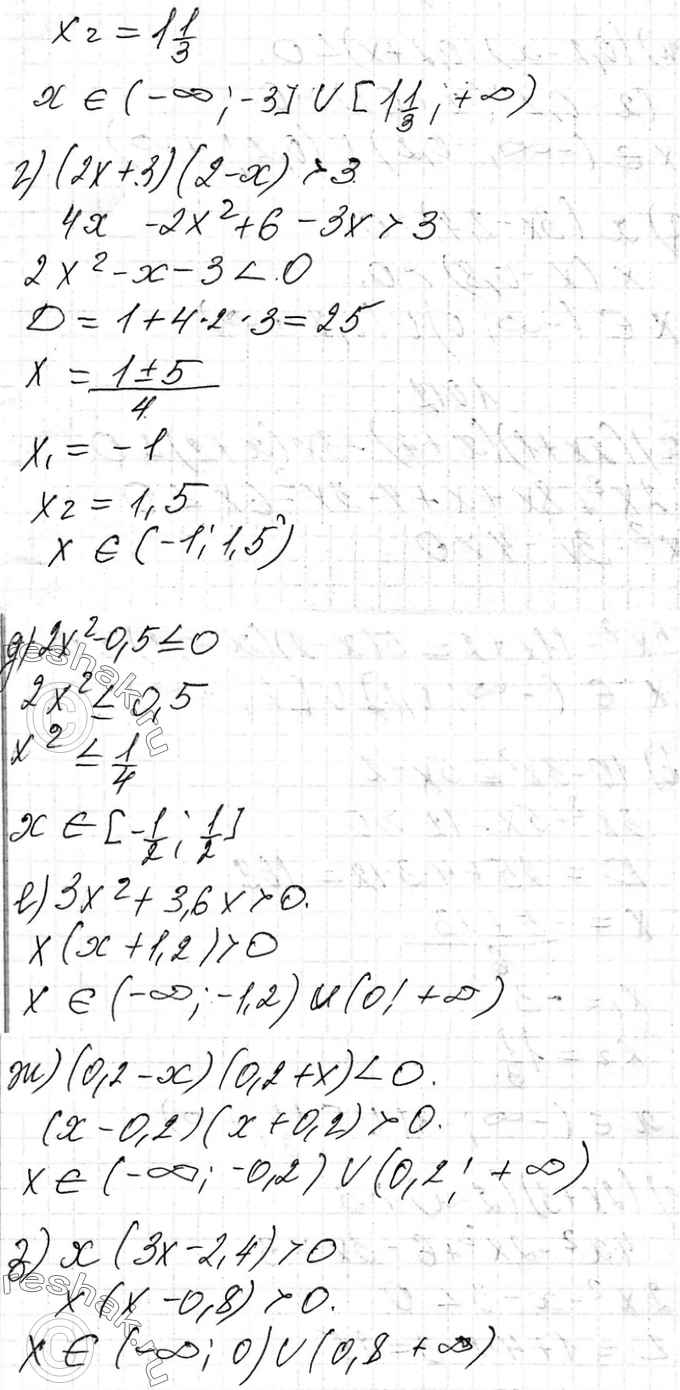 x₂ = 1 1/3
x ∈ (-∞; -3] ∪ [1 1/3; +∞)
г) (2x+3)(2-x) > 3
4x - 2x² + 6 - 3x > 3
2x² - x - 3 < 0
D = 1 + 4·2·3 = 25
x = (1±5)/4
x₁ = -1
x₂ = 1,5
x ∈ (-1; 1,5)
д) 2x² - 0,5 ≤ 0
2x² ≤ 0,5
x² ≤ 1/4
x ∈ [-1/2; 1/2]
е) 3x² + 3,6x > 0.
x(x+1,2) > 0
x ∈ (-∞; -1,2) ∪ (0; +∞)
ж) (0,2-x)(0,2+x) < 0.
(x-0,2)(x+0,2) > 0.
x ∈ (-∞; -0,2) ∪ (0,2; +∞)
з) x(3x-2,4) > 0
x(x-0,8) > 0.
x ∈ (-∞; 0) ∪ (0,8 +∞)
©reshak.ru
©reshak.ru